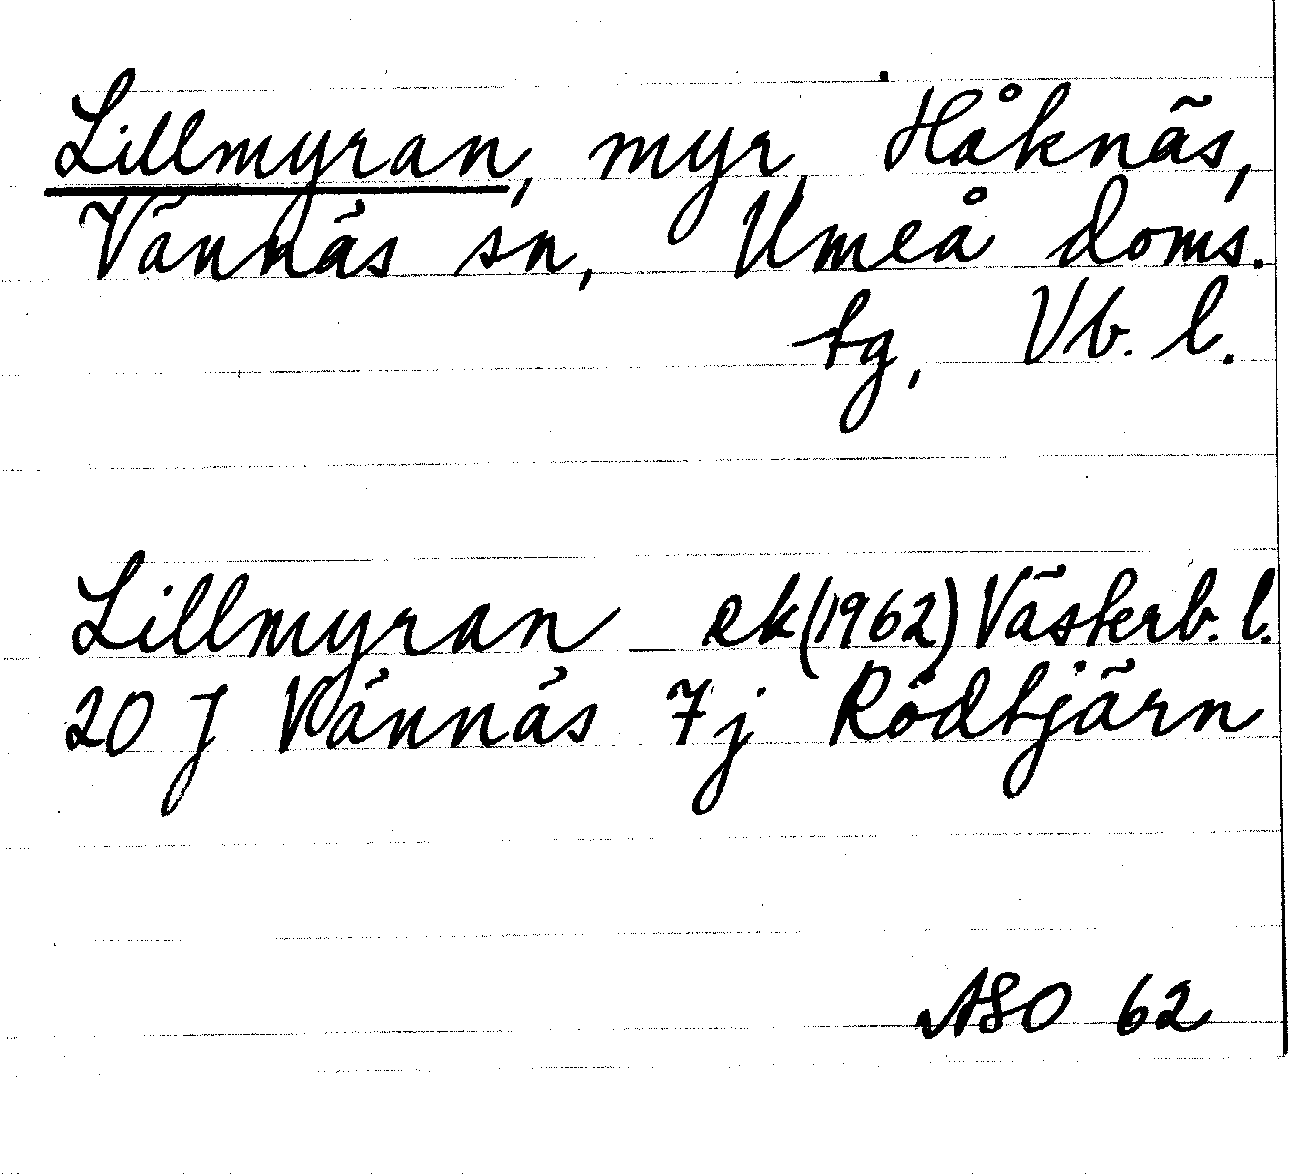 Lillmyran, myr, Håknäs,
Vännäs sn, Umeå doms.
tg, Vb. l.
Lillmyran ek (1962) Västerb. l.
20 J Vännäs 7j Rödtjärn
ASO 62